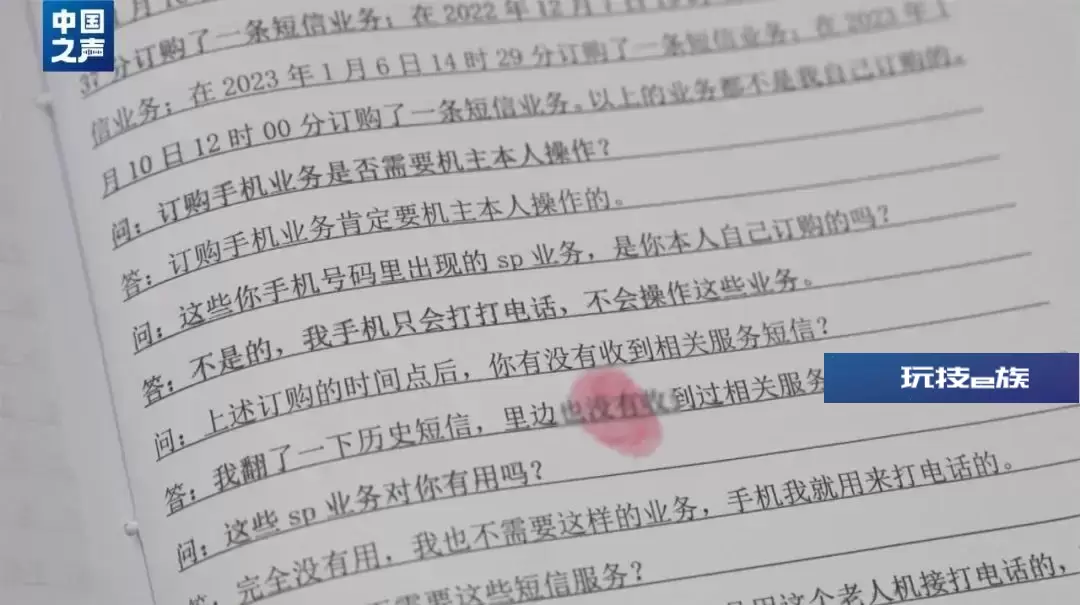 中国之声
37分订购了一条短信业务；在2022年12月7日
信业务；在2023年1月6日14时29分订购了一条短信业务；在2023年1
月10日12时00分订购了一条短信业务。以上的业务都不是我自己订购的。
问：订购手机业务是否需要机主本人操作？
答：订购手机业务肯定要机主本人操作的。
问：这些你手机号码里出现的sp业务，是你本人自己订购的吗？
答：不是的，我手机只会打打电话，不会操作这些业务。
问：上述订购的时间点后，你有没有收到相关服务短信？
答：我翻了一下历史短信，里边也没有收到过相关服务
玩技e族
问：这些sp业务对你有用吗？
答：完全没有用，我也不需要这样的业务，手机我就用来打电话的。
需要这些短信服务？
用这个老人机接打电话的，